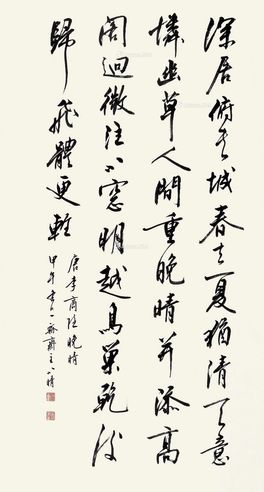 深居俯夹城春去夏猶清天意
憐幽草人間重晚晴并添高
阁迴微注小窗明越鳥巢乾後
歸飛體更輕
唐李商隱晚晴
甲午